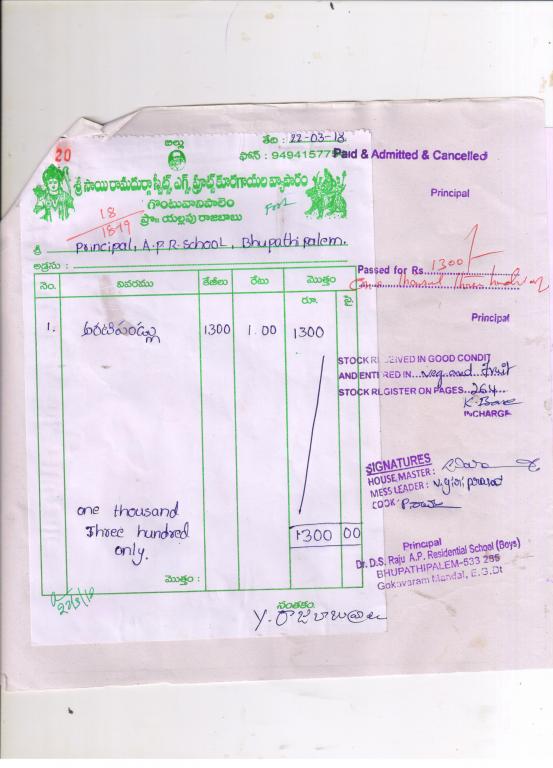 20
బిల్లు
తేది : 22-03-18
ఫోన్ : 949415775
శ్రీ సాయి రామదుర్గా స్వీట్స్, ఎగ్స్, ఫ్రూట్స్ కూరగాయల వ్యాపారం
గొంటువానిపాలెం
ప్రొః యల్లపు రాజబాబు
18
1879
శ్రీ Principal, A.P.R. School, Bhupathi palem.
అడ్రసు :
నెం. వివరము కేజీలు రేటు మొత్తం
రూ. పై.
1. అరటిపండ్లు 1300 1.00 1300
one thousand
Three hundred
only.
1300 00
మొత్తం :
22/3/18
సంతకం
Y. రాజబాబు
Paid & Admitted & Cancelled
Principal
Passed for Rs. 1300/-
One Thousand Three hundred
Principal
STOCK RECEIVED IN GOOD CONDIT
AND ENTERED IN Veg and Fruit
STOCK REGISTER ON PAGES 264
INCHARGE
SIGNATURES
HOUSE MASTER :
MESS LEADER : V. giri prasad
COOK :
Principal
Dr. D.S. Raju A.P. Residential School (Boys)
BHUPATHIPALEM-533 285
Gokavaram Mandal, E.G.Dt